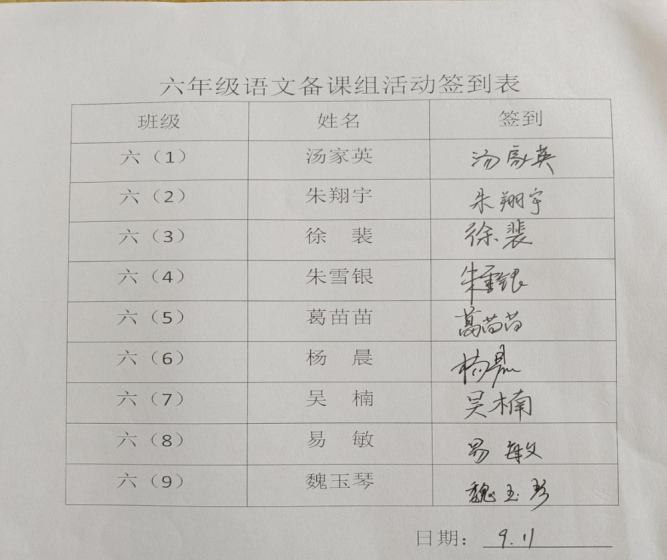 六年级语文备课组活动签到表
班级 姓名 签到
六（1） 汤家英 汤家英
六（2） 朱翔宇 朱翔宇
六（3） 徐 裴 徐裴
六（4） 朱雪银 朱雪银
六（5） 葛苗苗 葛苗苗
六（6） 杨 晨 杨晨
六（7） 吴 楠 吴楠
六（8） 易 敏 易敏
六（9） 魏玉琴 魏玉琴
日期： 9.11